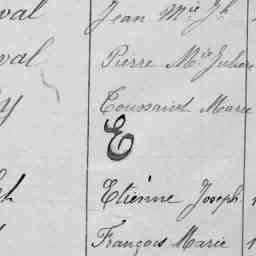 val Jean M.ie Jh
val Pierre M.ie Julien
y Toussaint Marie
E
Etienne Joseph
François Marie